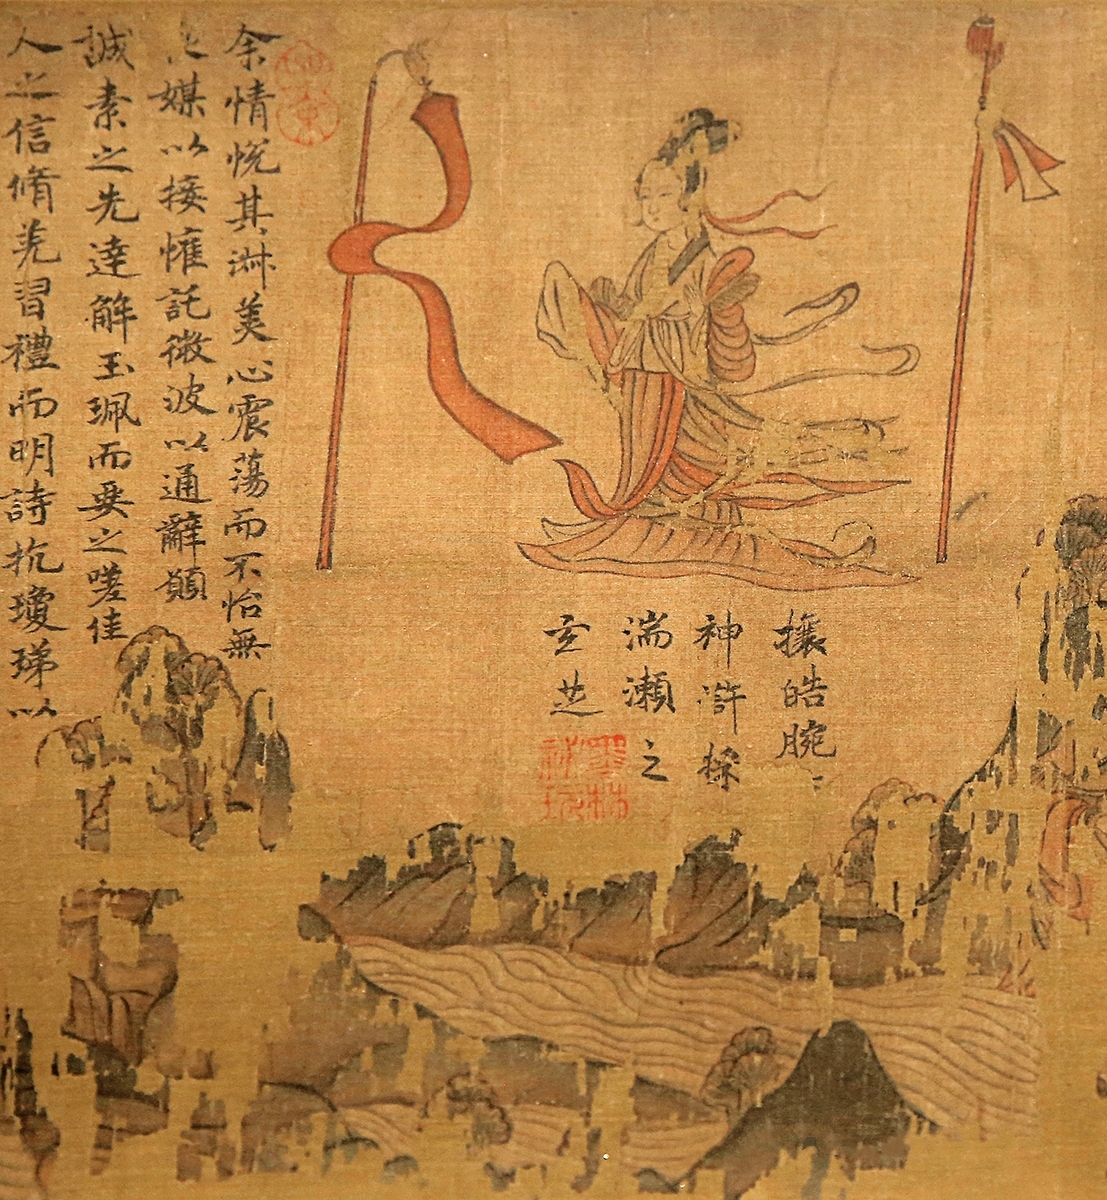 攘皓腕
神滸採
湍瀨之
玄芝
墨林
秘玩
余情悅其淑美心震蕩而不怡無
媒以接懽託微波以通辭願
誠素之先達解玉珮而要之嗟佳
人之信脩羌習禮而明詩抗瓊珶以